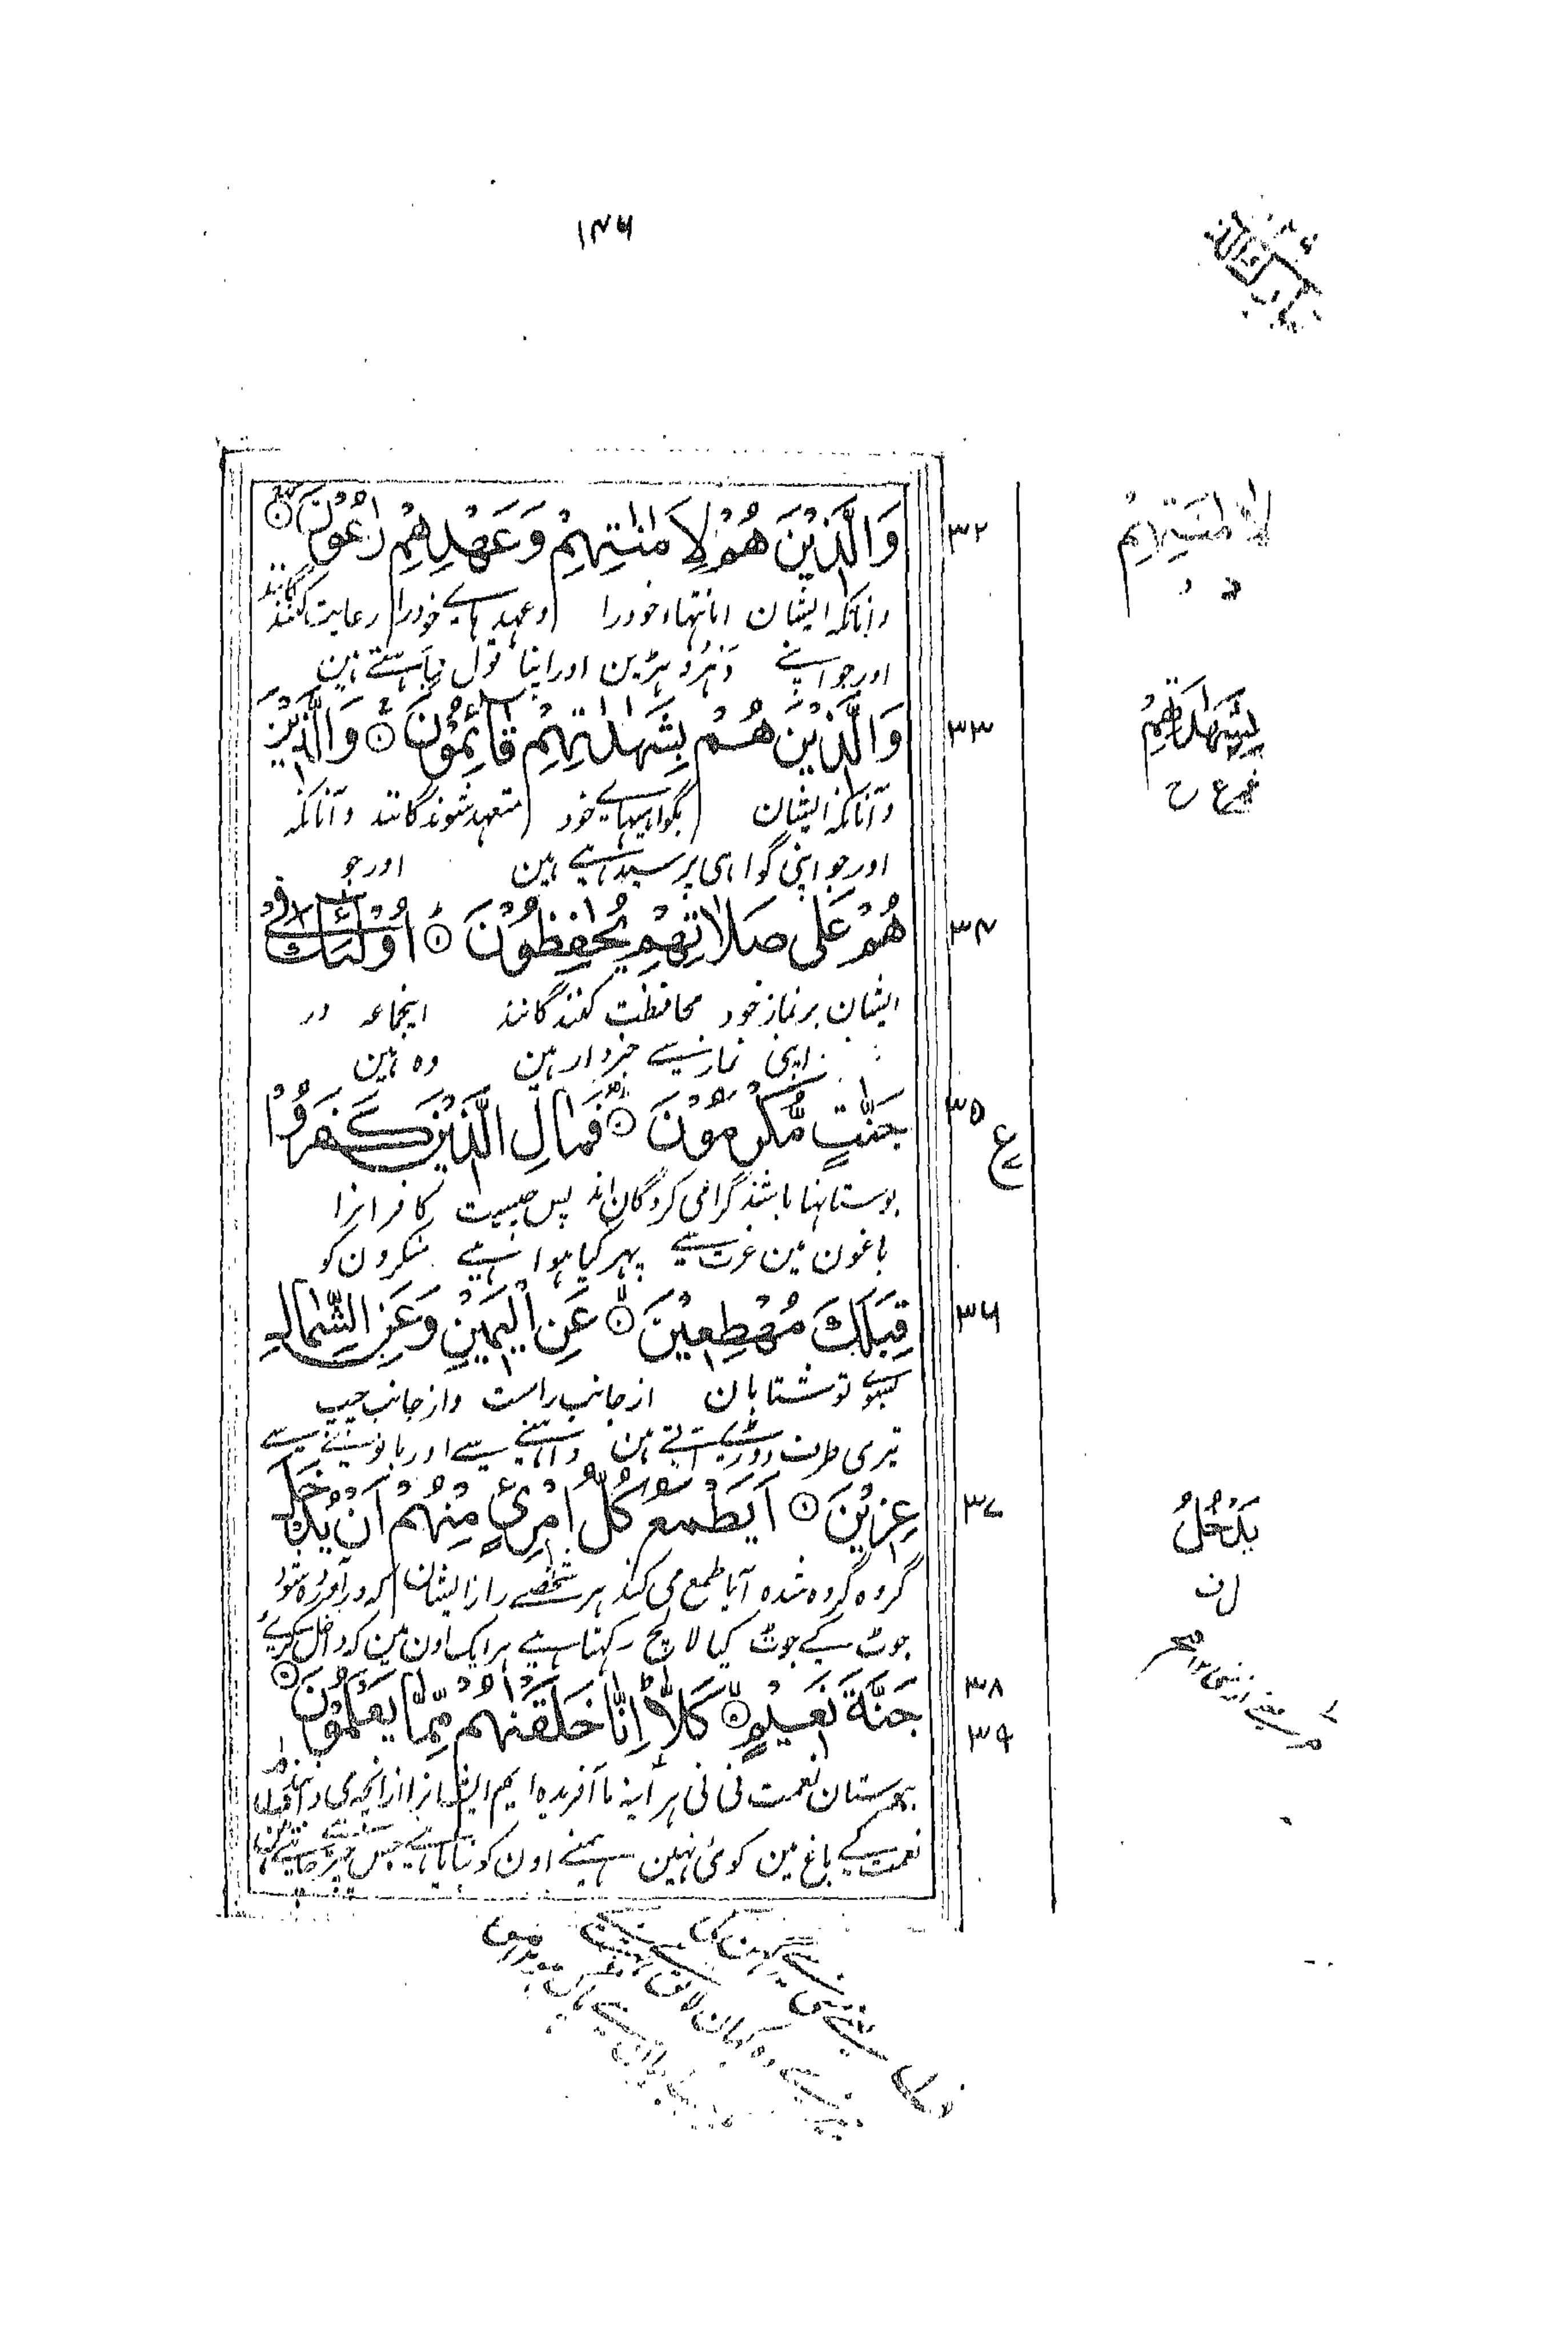 ۱۴۶
وَالَّذِيْنَ هُمْ لِاَمٰنٰتِهِمْ وَعَهْدِهِمْ رٰعُوْنَ
۳۲
لِاَمٰنٰتِهِمْ
د د
وآنانکہ ایشان امانتہاء خود را وعہد ہاے خود را رعایت کنندگانند
اور جو اپنے دہڑو ہڑین اور اپنا قول نباہتے ہین
وَالَّذِيْنَ هُمْ بِشَهٰدٰتِهِمْ قَآئِمُوْنَ وَالَّذِيْنَ
۳۳
بِشَهٰدٰتِهِمْ
وآنانکہ ایشان بگواہیہاے خود متعہد شوندگانند وآنانکہ
اور جو اپنی گواہی پر سیدہے ہین اور جو
هُمْ عَلٰى صَلَاتِهِمْ يُحٰفِظُوْنَ اُولٰٓئِكَ فِيْ
۳۴
ایشان بر نماز خود محافظت کنندگانند اینجماعہ در
اپنی نماز سے خبردار ہین وہ ہین
جَنّٰتٍ مُّكْرَمُوْنَ فَمَالِ الَّذِيْنَ كَفَرُوْا
۳۵
ع
بوستانہا باشند گرامی کردگان اند پس چیست کافرانرا
باغون مین عزت سے پہر کیا ہوا ہے منکرون کو
قِبَلَكَ مُهْطِعِيْنَ عَنِ الْيَمِيْنِ وَعَنِ الشِّمَالِ
۳۶
بسوے تو شتابان از جانب راست واز جانب چپ
تیری طرف دوڑتے آتے ہین داہنے سے اور بائین سے
عِزِيْنَ اَيَطْمَعُ كُلُّ امْرِئٍ مِّنْهُمْ اَنْ يُّدْخَلَ
۳۷
يُدْخَلُ
ل ف
گروہ گروہ شدہ آیا طمع می کند ہر شخصے را از ایشان کہ در آوردہ شود
جوٹ کے جوٹ کیا لالچ رکہتا ہے ہر ایک اون مین کہ داخل کریے
جَنَّةَ نَعِيْمٍ كَلَّا اِنَّا خَلَقْنٰهُمْ مِّمَّا يَعْلَمُوْنَ
۳۸
۳۹
بوستان نعمت نی نی ہر آینہ ما آفریدہ ایم ایشانرا از انچہ می دانند
نعمت کے باغ مین کوئی نہین ہمنے اون کو بنایا ہے جس چیز سے جانتے ہین